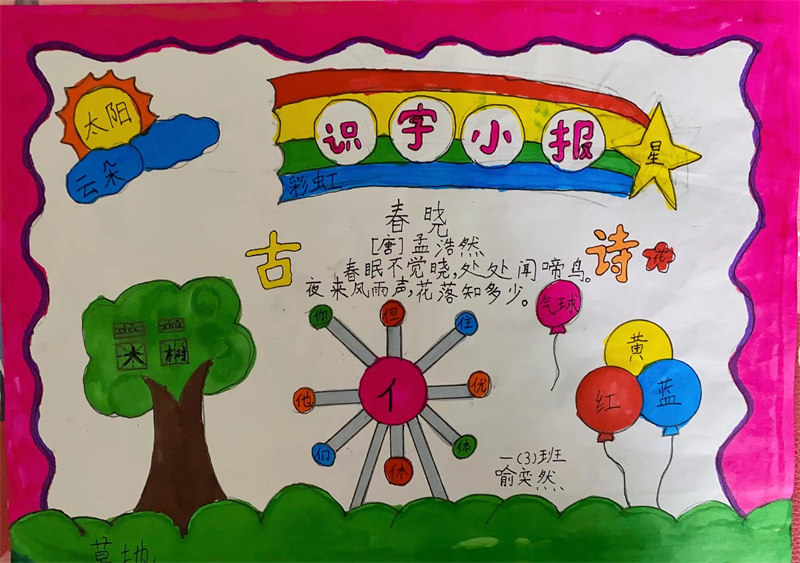 太阳
云朵
识字小报
彩虹
星
春晓
[唐]孟浩然
春眠不觉晓,处处闻啼鸟。
夜来风雨声,花落知多少。
古诗
花
气球
树
你
但
住
他
亻
优
们
休
体
黄
红
蓝
一(3)班
喻奕然
草地